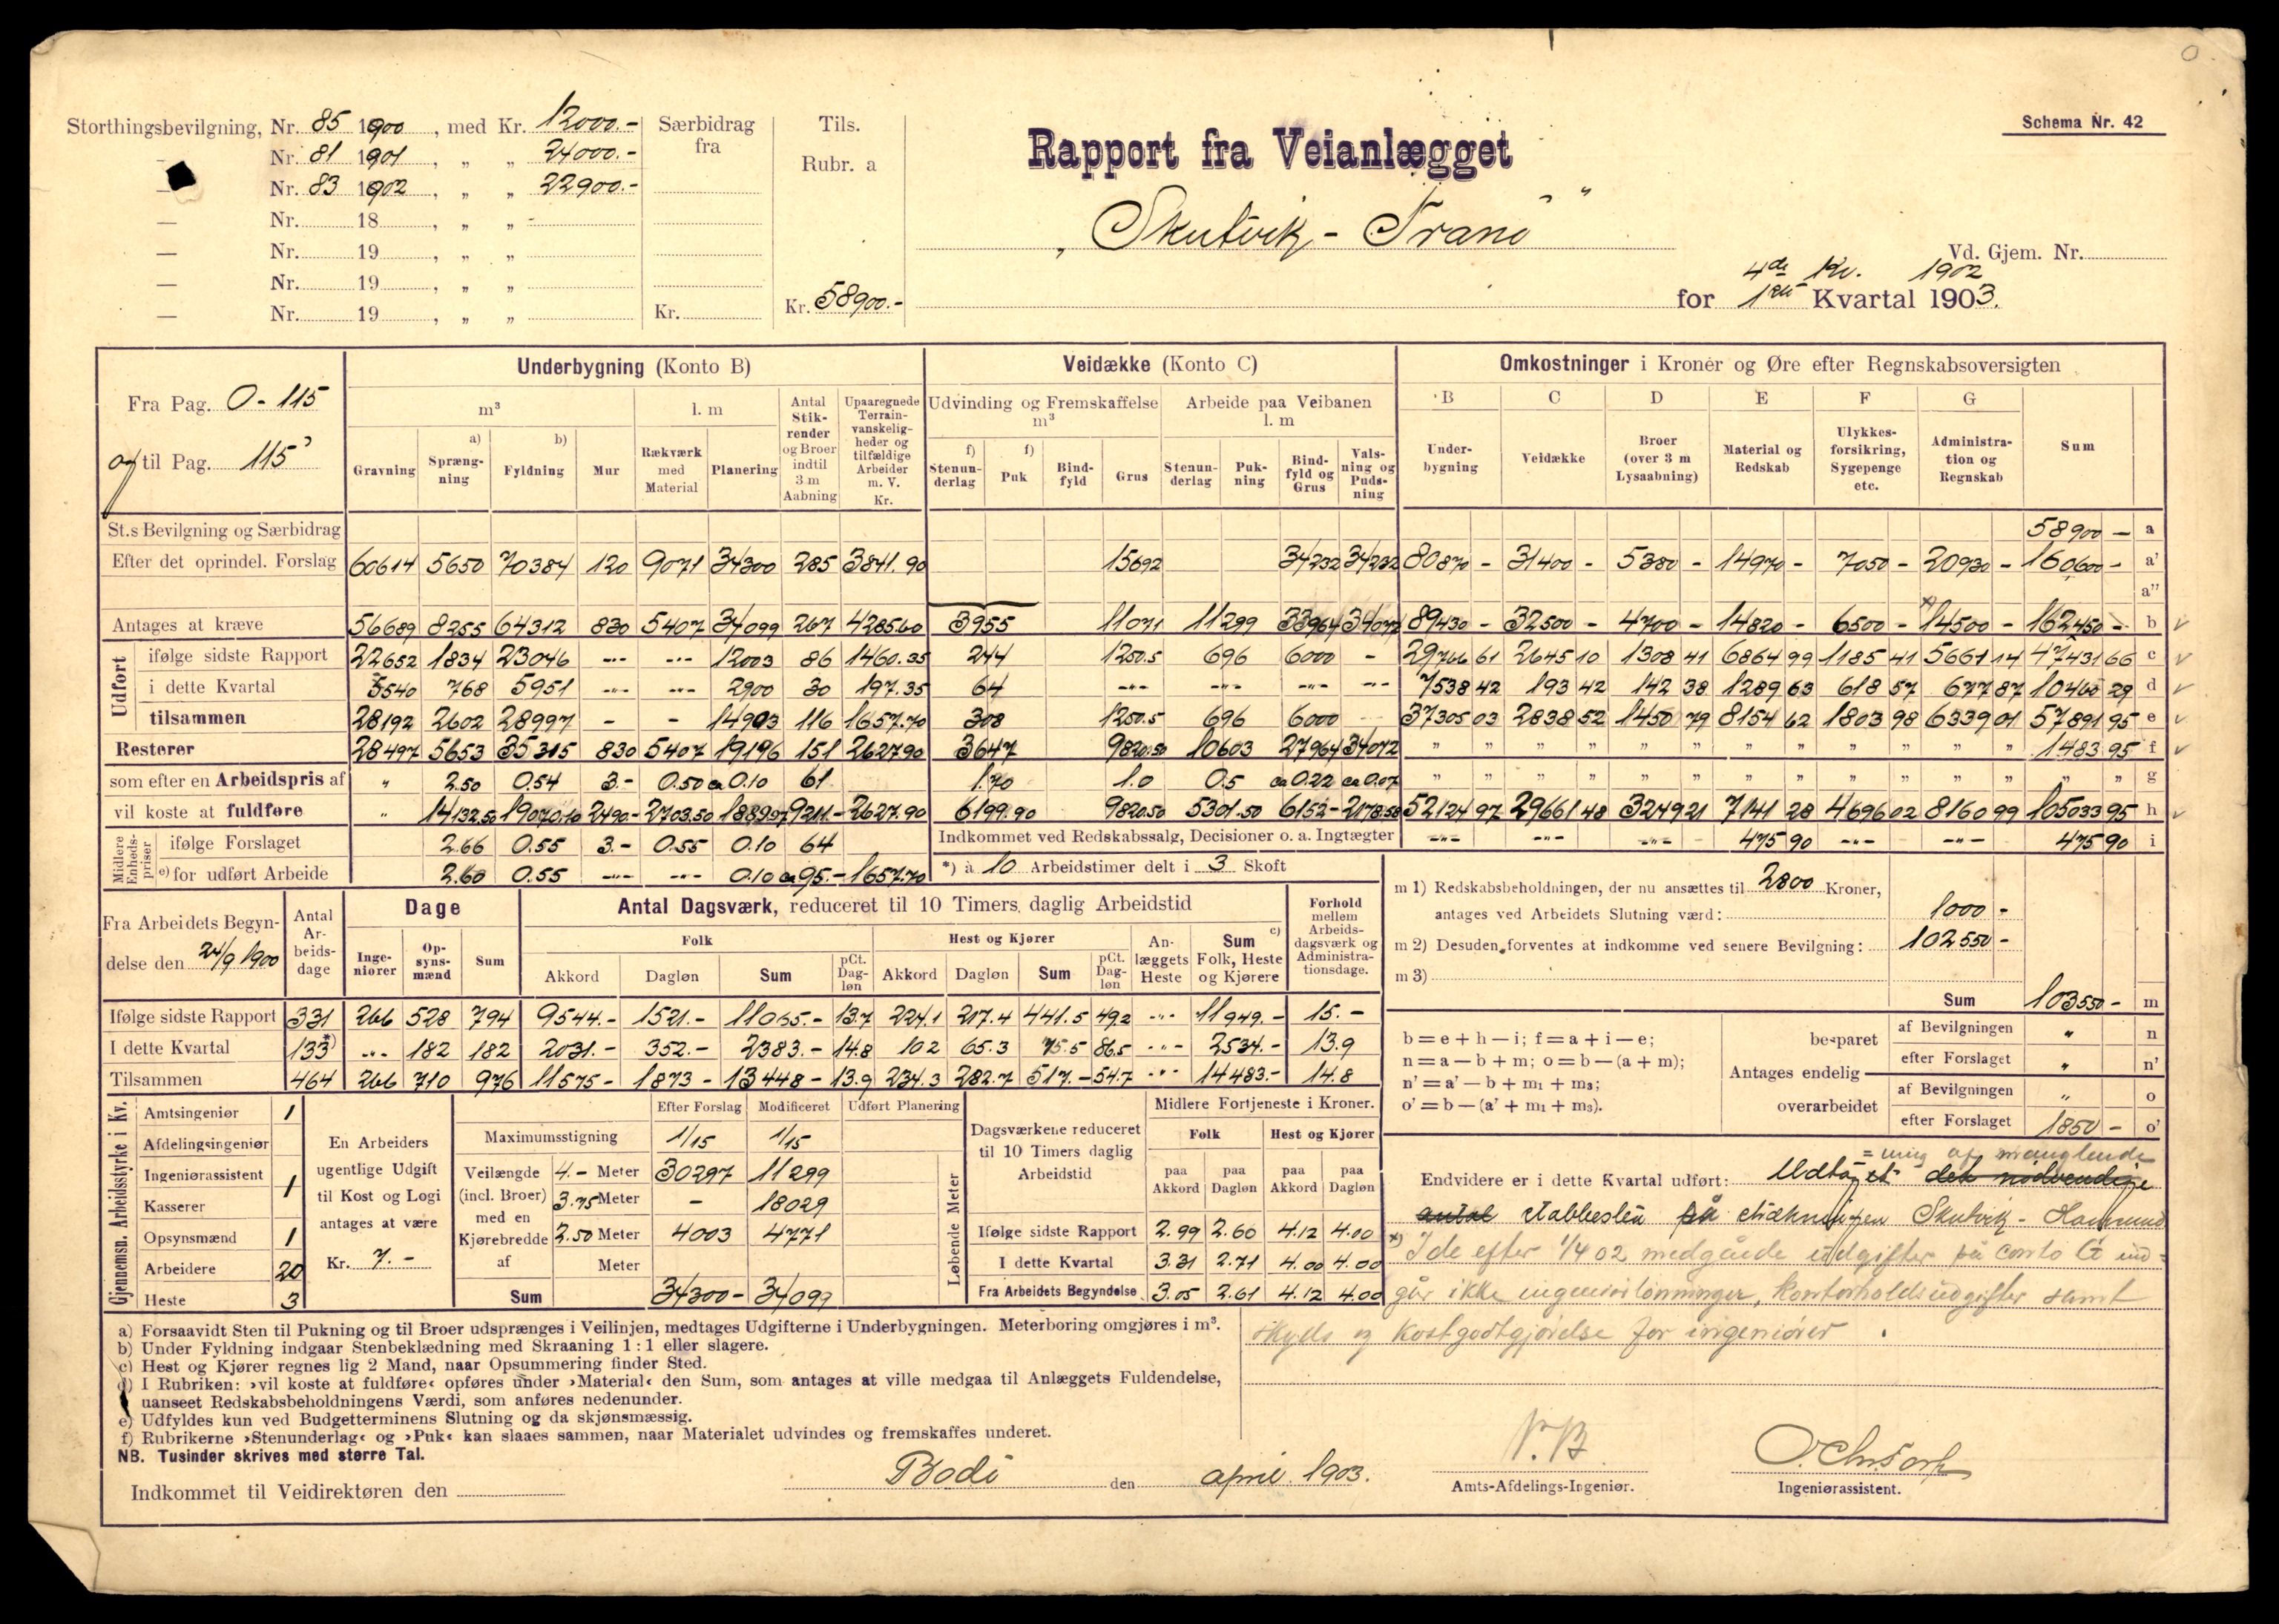 Schema Nr. 42
Storthingsbevilgning, Nr. 85 1900, med Kr. 12000.-
— Nr. 81 1901, „ „ 24000.-
— Nr. 83 1902, „ „ 22900.-
— Nr. 18 , „ „
— Nr. 19 , „ „
— Nr. 19 , „ „
— Nr. 19 , „ „
Særbidrag fra
Kr.
Tils. Rubr. a
Kr. 58900.-
Rapport fra Veianlægget
„Skutvik - Tranö"
Vd. Gjem. Nr.
4de Kv. 1902
for 1ste Kvartal 1903.
Fra Pag. 0 - 115
og til Pag. 115
Underbygning (Konto B)
m³
l. m
Gravning
a) Sprængning
b) Fyldning
Mur
Rækværk med Material
Planering
Antal Stikrender og Broer indtil 3 m Aabning
Upaaregnede Terrainvanskeligheder og tilfældige Arbeider m. V. Kr.
Veidække (Konto C)
Udvinding og Fremskaffelse m³
Arbeide paa Veibanen l. m
f) Stenunderlag
f) Puk
Bindfyld
Grus
Stenunderlag
Pukning
Bindfyld og Grus
Valsning og Pudsning
Omkostninger i Kroner og Øre efter Regnskabsoversigten
B Underbygning
C Veidække
D Broer (over 3 m Lysaabning)
E Material og Redskab
F Ulykkesforsikring, Sygepenge etc.
G Administration og Regnskab
Sum
St.s Bevilgning og Særbidrag 58900 — a
Efter det oprindel. Forslag 60614 5650 70384 120 9071 34300 285 3841.90 15692 34232 34232 80870 - 31400 - 5380 - 14970 - 7050 - 20930 - 160600 - a'
a"
Antages at kræve 56689 8255 64312 830 5407 34099 267 4285.60 3955 11071 11299 33964 34072 89430 - 32500 - 4700 - 14820 - 6500 - *) 14500 - 162450 - b
Udført
ifølge sidste Rapport 22652 1834 23046 -"- -"- 12003 86 1460.35 244 1250.5 696 6000 - 29766 61 2645 10 1308 41 6864 99 1185 41 5661 14 47431 66 c
i dette Kvartal 5540 768 5951 -"- -"- 2900 30 197.35 64 -"- -"- -"- -"- 7538 42 193 42 142 38 1289 63 618 57 677 87 10460 29 d
tilsammen 28192 2602 28997 - - 14903 116 1657.70 308 1250.5 696 6000 37305 03 2838 52 1450 79 8154 62 1803 98 6339 01 57891 95 e
Resterer 28497 5653 35315 830 5407 19196 151 2627.90 3647 9820.50 10603 27964 34072 " " " " " " " " " " " " 1483 95 f
som efter en Arbeidspris af " 2.50 0.54 3.- 0.50 ca 0.10 61 1.70 1.0 0.5 ca 0.22 ca 0.07 " " " " " " " " " " " " " " g
vil koste at fuldføre " 14132.50 19070.10 2490.- 2703.50 1889.97 9211.- 2627.90 6199.90 9820.50 5301.50 6152 - 2178.58 52124 97 29661 48 3249 21 7141 28 4696 02 8160 99 105033 95 h
Midlere Enhedspriser
ifølge Forslaget 2.66 0.55 3.- 0.55 0.10 64
e) for udført Arbeide 2.60 0.55 -"- -"- 0.10 ca 95.- 1657.70
Indkommet ved Redskabssalg, Decisioner o. a. Ingtægter -"- -"- -"- 475 90 -"- -"- 475 90 i
*) à 10 Arbeidstimer delt i 3 Skoft
Fra Arbeidets Begyndelse den 24/9 1900
Antal Arbeidsdage
Dage
Ingeniører
Opsynsmænd
Sum
Antal Dagsværk, reduceret til 10 Timers daglig Arbeidstid
Folk
Akkord Dagløn Sum pCt. Dagløn
Hest og Kjører
Akkord Dagløn Sum pCt. Dagløn
Anlæggets Heste
Sum c) Folk, Heste og Kjørere
Forhold mellem Arbeidsdagsværk og Administrationsdage.
Ifølge sidste Rapport 331 266 528 794 9544.- 1521.- 11065.- 13.7 224.1 217.4 441.5 49.2 -"- 11949.- 15.-
I dette Kvartal 133 *) -"- 182 182 2031.- 352.- 2383.- 14.8 10.2 65.3 75.5 86.5 -"- 2534.- 13.9
Tilsammen 464 266 710 976 11575 - 1873 - 13448 - 13.9 234.3 282.7 517.- 54.7 -"- 14483.- 14.8
m 1) Redskabsbeholdningen, der nu ansættes til 2800 Kroner,
antages ved Arbeidets Slutning værd: 1000 -
m 2) Desuden forventes at indkomme ved senere Bevilgning: 102550 -
m 3)
Sum 103550 - m
b = e + h — i; f = a + i — e;
n = a — b + m; o = b — (a + m);
n' = a' — b + m₁ + m₃;
o' = b — (a' + m₁ + m₃).
Antages endelig
besparet
af Bevilgningen " n
efter Forslaget " n'
overarbeidet
af Bevilgningen " o
efter Forslaget 1850 - o'
Gjennemsn. Arbeidsstyrke i Kv.
Amtsingeniør 1
Afdelingsingeniør
Ingeniørassistent 1
Kasserer
Opsynsmænd 1
Arbeidere 20
Heste 3
En Arbeiders ugentlige Udgift til Kost og Logi antages at være
Kr. 7.-
Efter Forslag Modificeret Udført Planering
Maximumsstigning 1/15 1/15
Veilængde (incl. Broer) med en Kjørebredde af
4.- Meter 30297 11299
3.75 Meter - 18029
2.50 Meter 4003 4771
Meter
Sum 34300 - 34099
Løbende Meter
Dagsværkene reduceret til 10 Timers daglig Arbeidstid
Midlere Fortjeneste i Kroner.
Folk
Hest og Kjører
paa Akkord paa Dagløn paa Akkord paa Dagløn
Ifølge sidste Rapport 2.99 2.60 4.12 4.00
I dette Kvartal 3.31 2.71 4.00 4.00
Fra Arbeidets Begyndelse 3.05 2.61 4.12 4.00
= ning af manglende
Endvidere er i dette Kvartal udført: Udtaget det nödvendige
antal stabbesten på strækningen Skutvik - Hamsund
*) I de efter 1/4 02 medgåede udgifter på conto G ind=
går ikke ingeniörlönninger, kontorholdsudgifter samt
skyds og kostgodtgjörelse for ingeniörer.
a) Forsaavidt Sten til Pukning og til Broer udsprænges i Veilinjen, medtages Udgifterne i Underbygningen. Meterboring omgjøres i m³.
b) Under Fyldning indgaar Stenbeklædning med Skraaning 1 : 1 eller slagere.
c) Hest og Kjører regnes lig 2 Mand, naar Opsummering finder Sted.
d) I Rubriken: ›vil koste at fuldføre‹ opføres under ›Material‹ den Sum, som antages at ville medgaa til Anlæggets Fuldendelse,
uanseet Redskabsbeholdningens Værdi, som anføres nedenunder.
e) Udfyldes kun ved Budgetterminens Slutning og da skjønsmæssig.
f) Rubrikerne ›Stenunderlag‹ og ›Puk‹ kan slaaes sammen, naar Materialet udvindes og fremskaffes underet.
NB. Tusinder skrives med større Tal.
Indkommet til Veidirektøren den
Bodö den april 1903.
Amts-Afdelings-Ingeniør.
Ingeniørassistent.